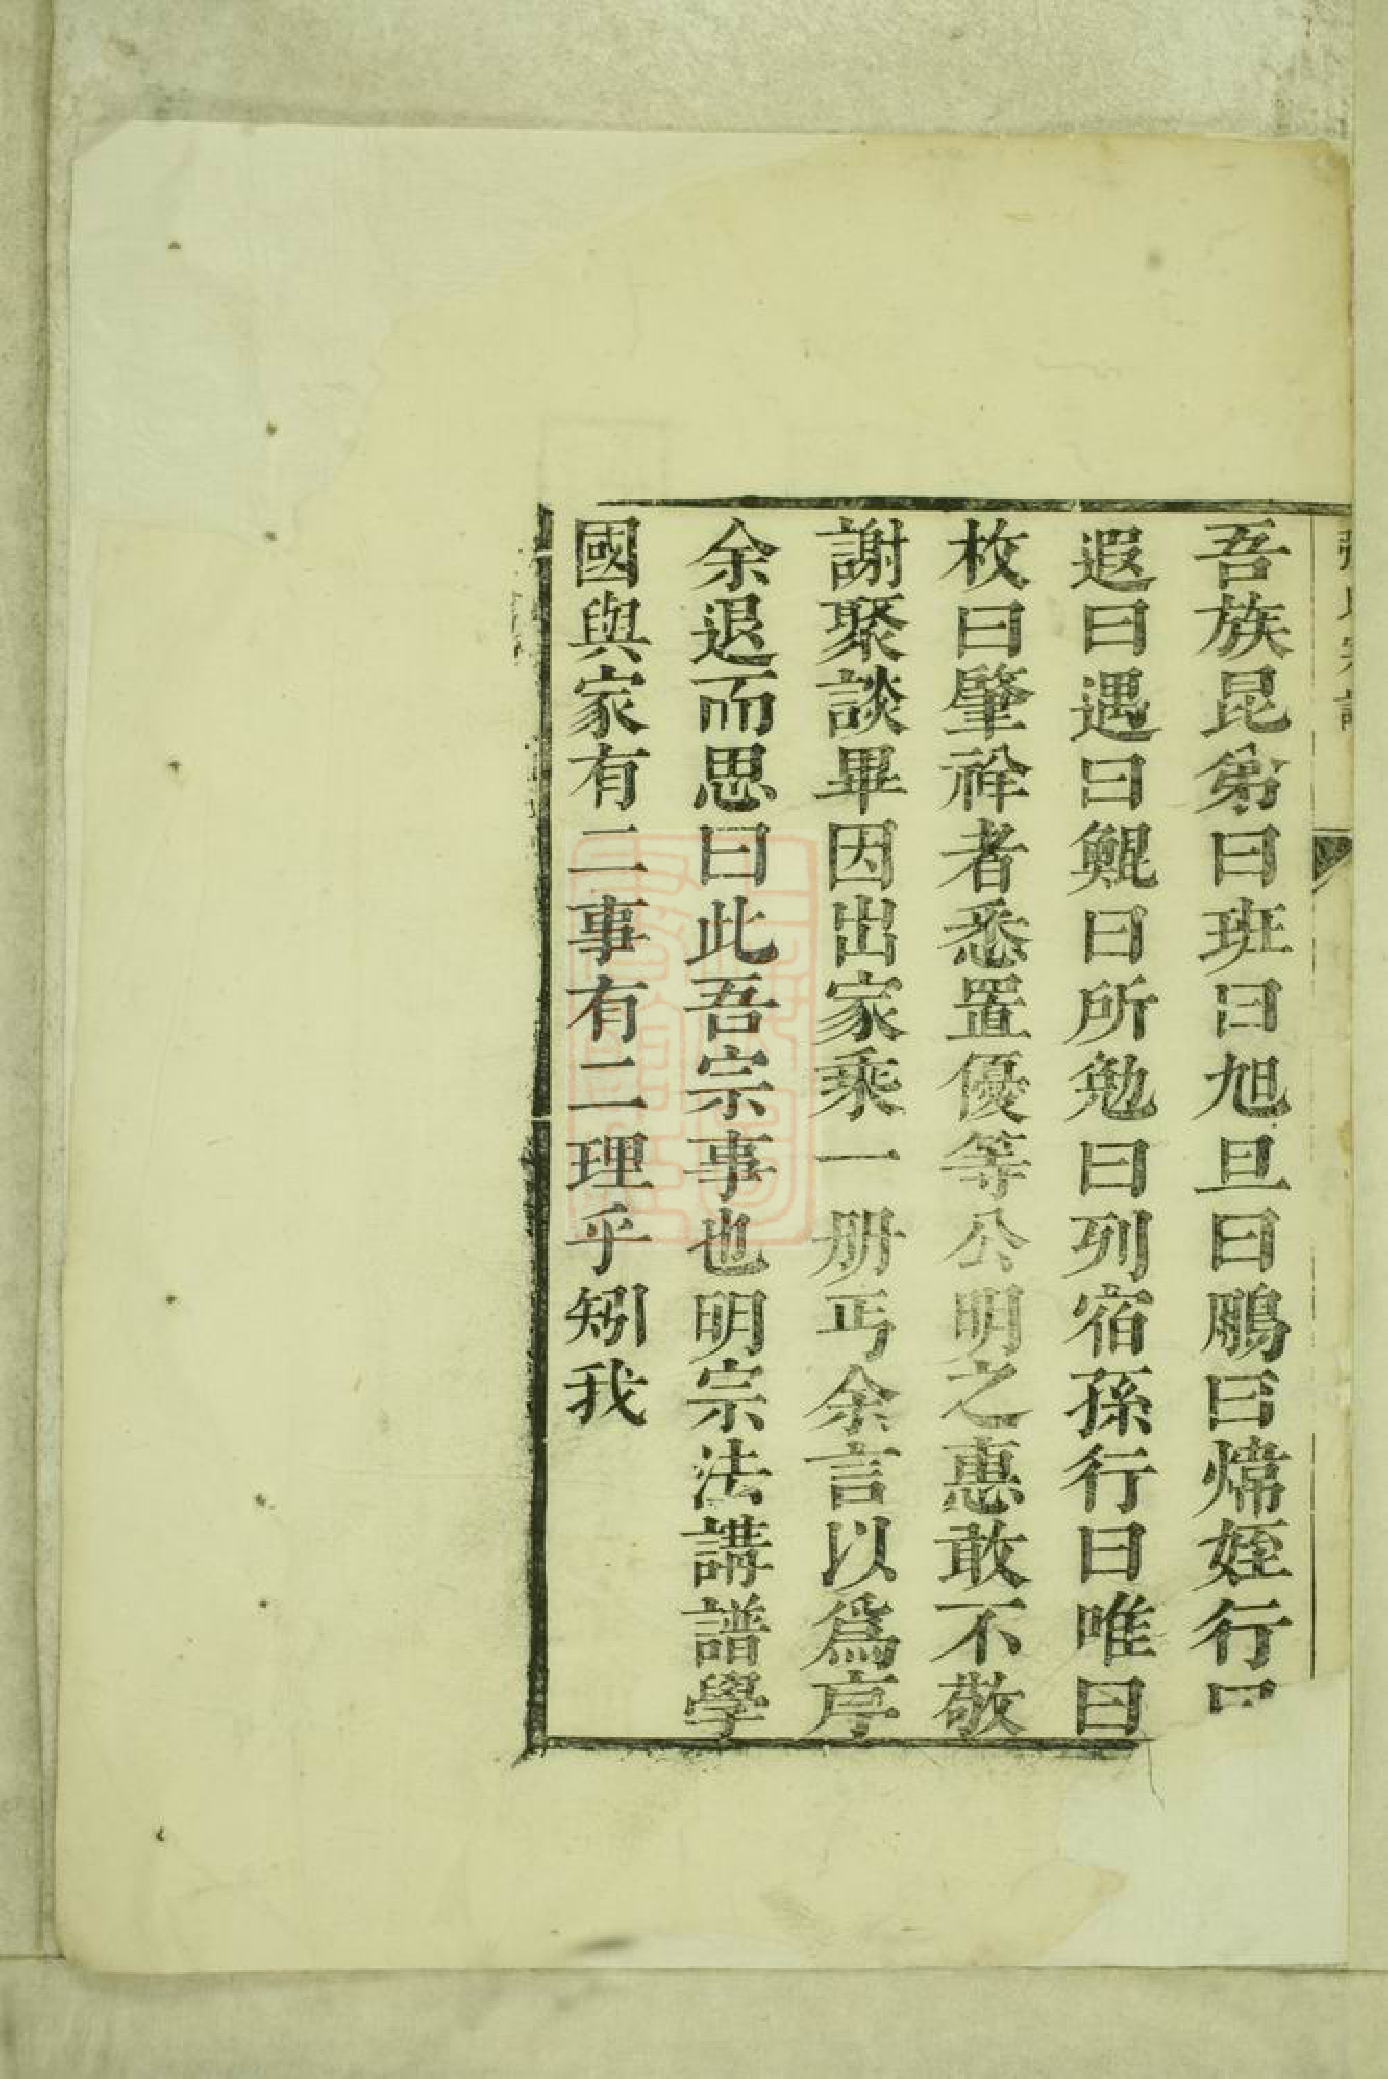 吾族昆弟曰班曰旭旦曰鵰曰煒姪行曰
遐曰遇曰鯤曰所勉曰列宿孫行曰唯曰
枚曰肇祥者悉置優等公明之惠敢不敬
謝聚談畢因出家乘一册丐余言以爲序
余退而思曰此吾宗事也明宗法講譜學
國與家有二事有二理乎矧我